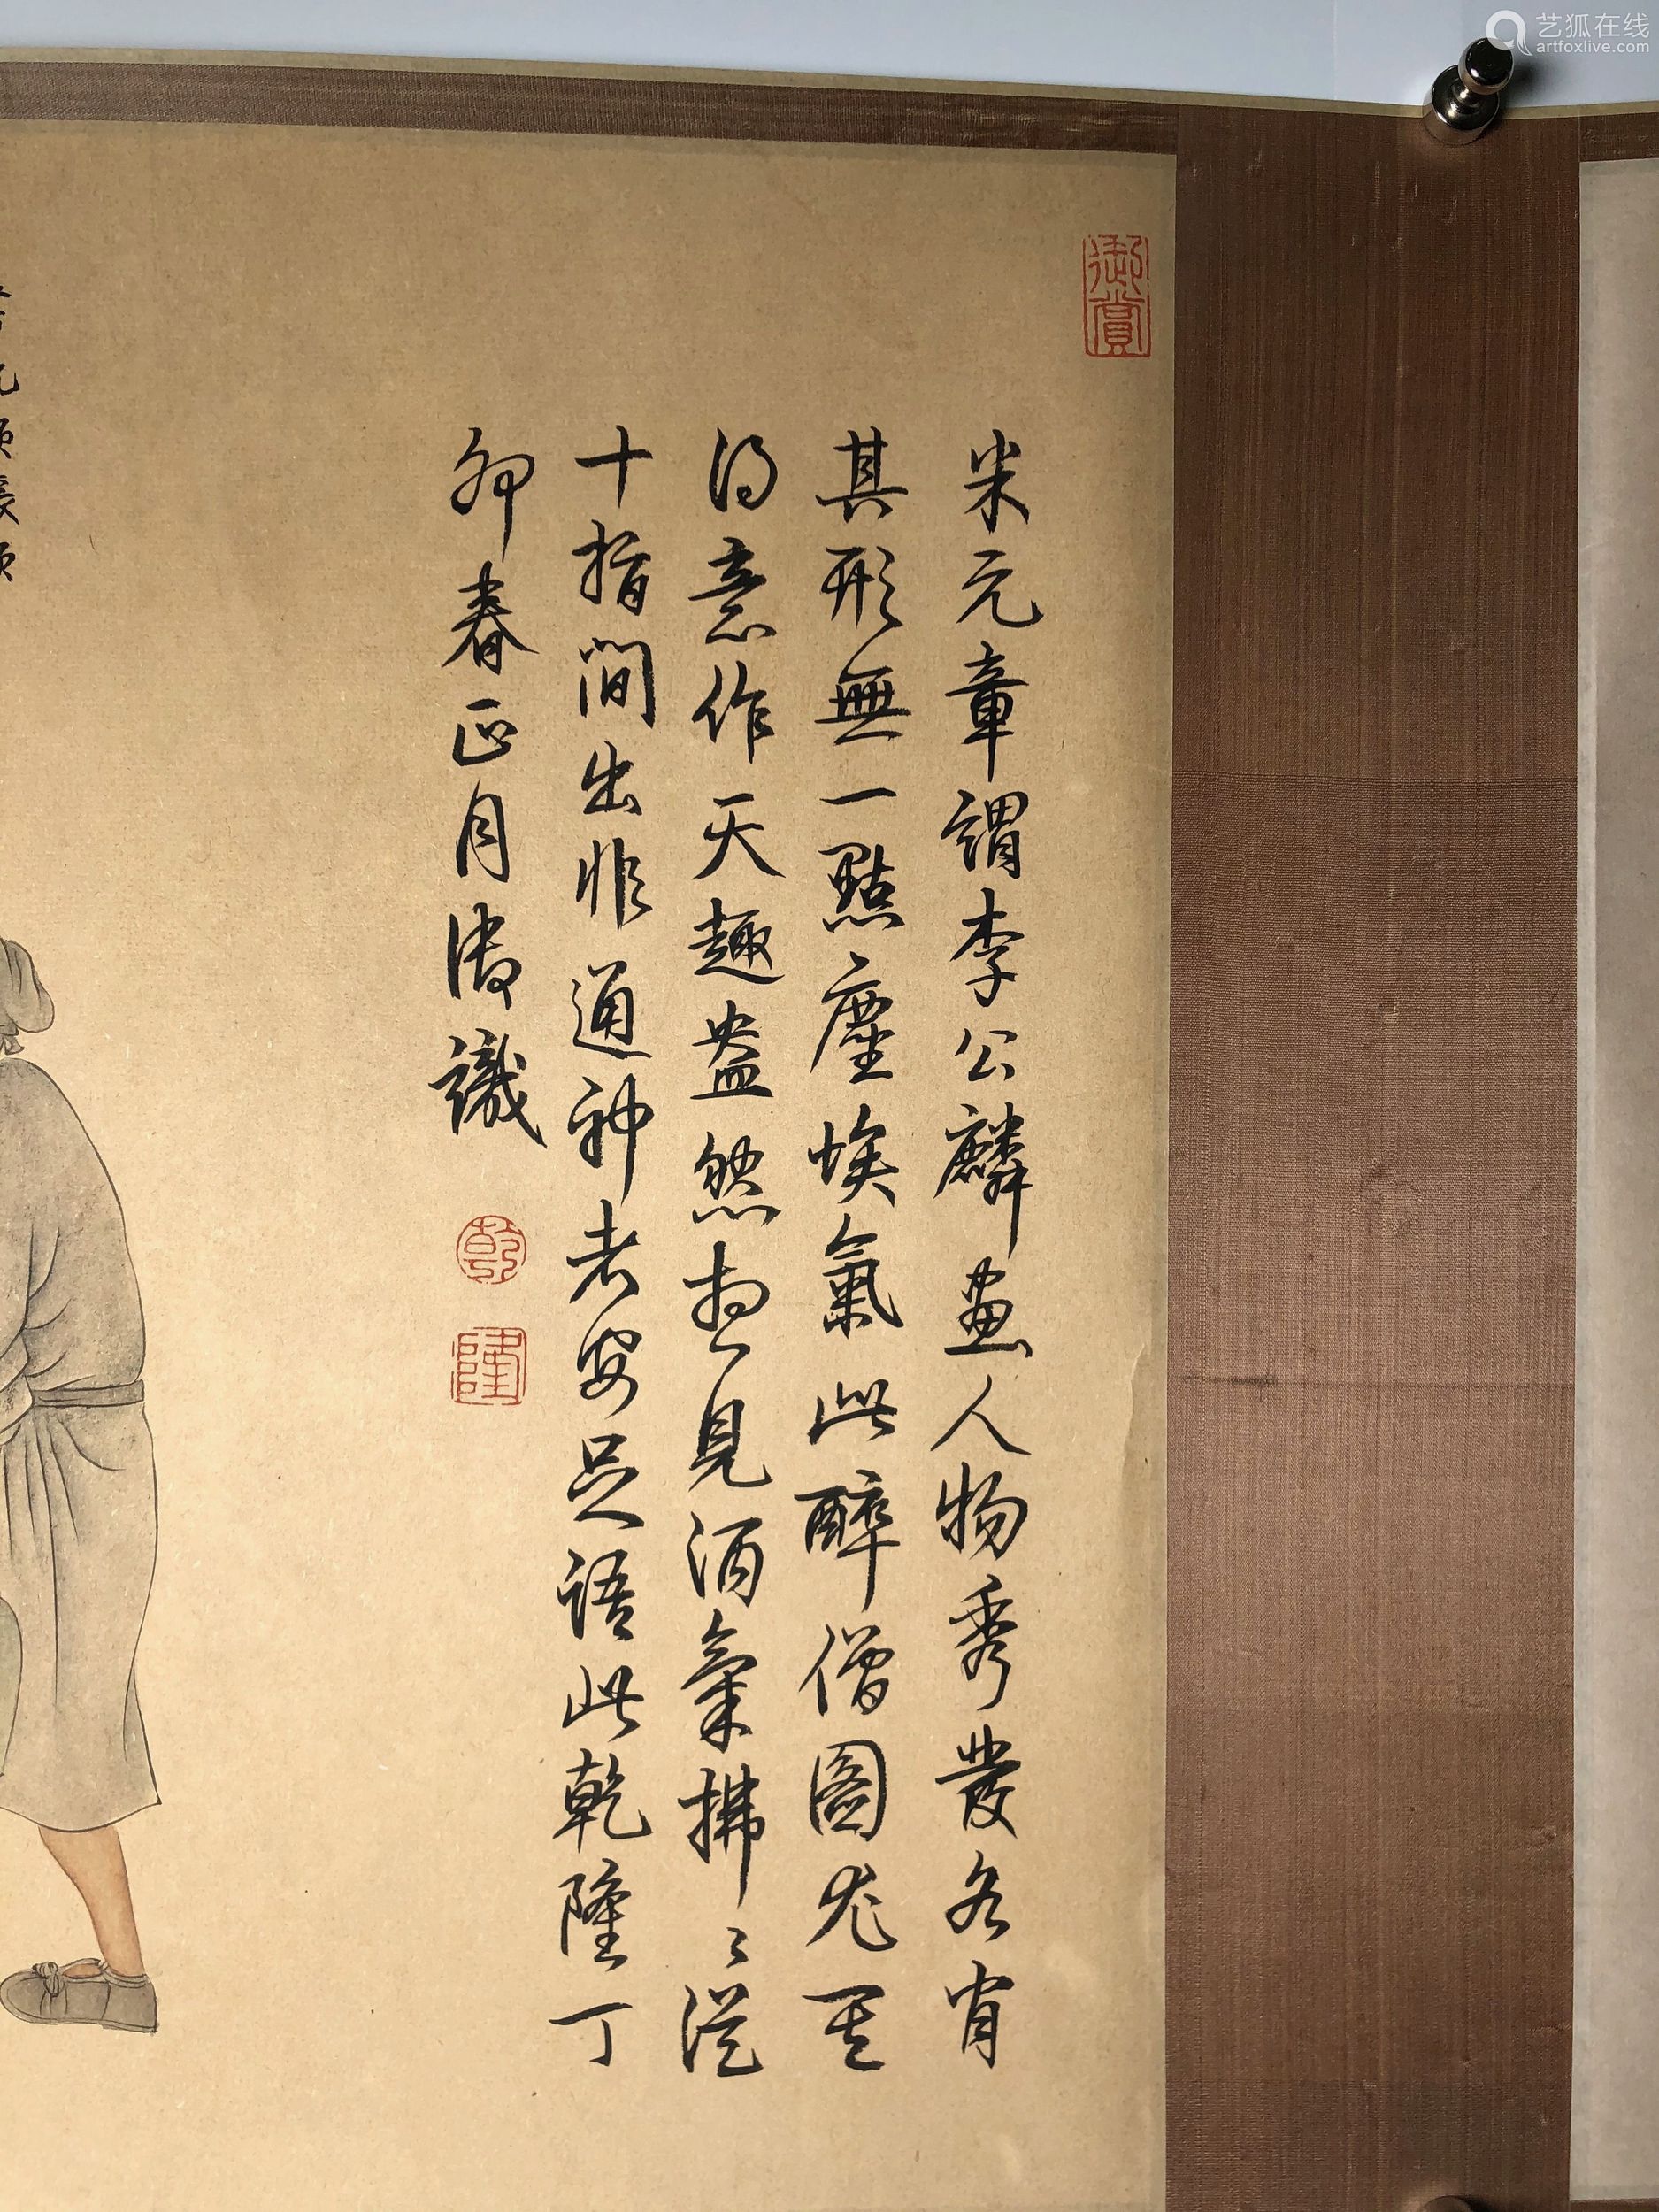 艺狐在线
artfoxlive.com
御賞
米元章謂李公麟畫人物秀發各肖
其形無一點塵埃氣此醉僧圖尤其
得意作天趣盎然想見酒氣拂〻從
十指間出非通神者安足語此乾隆丁
卯春正月御識
乾
隆